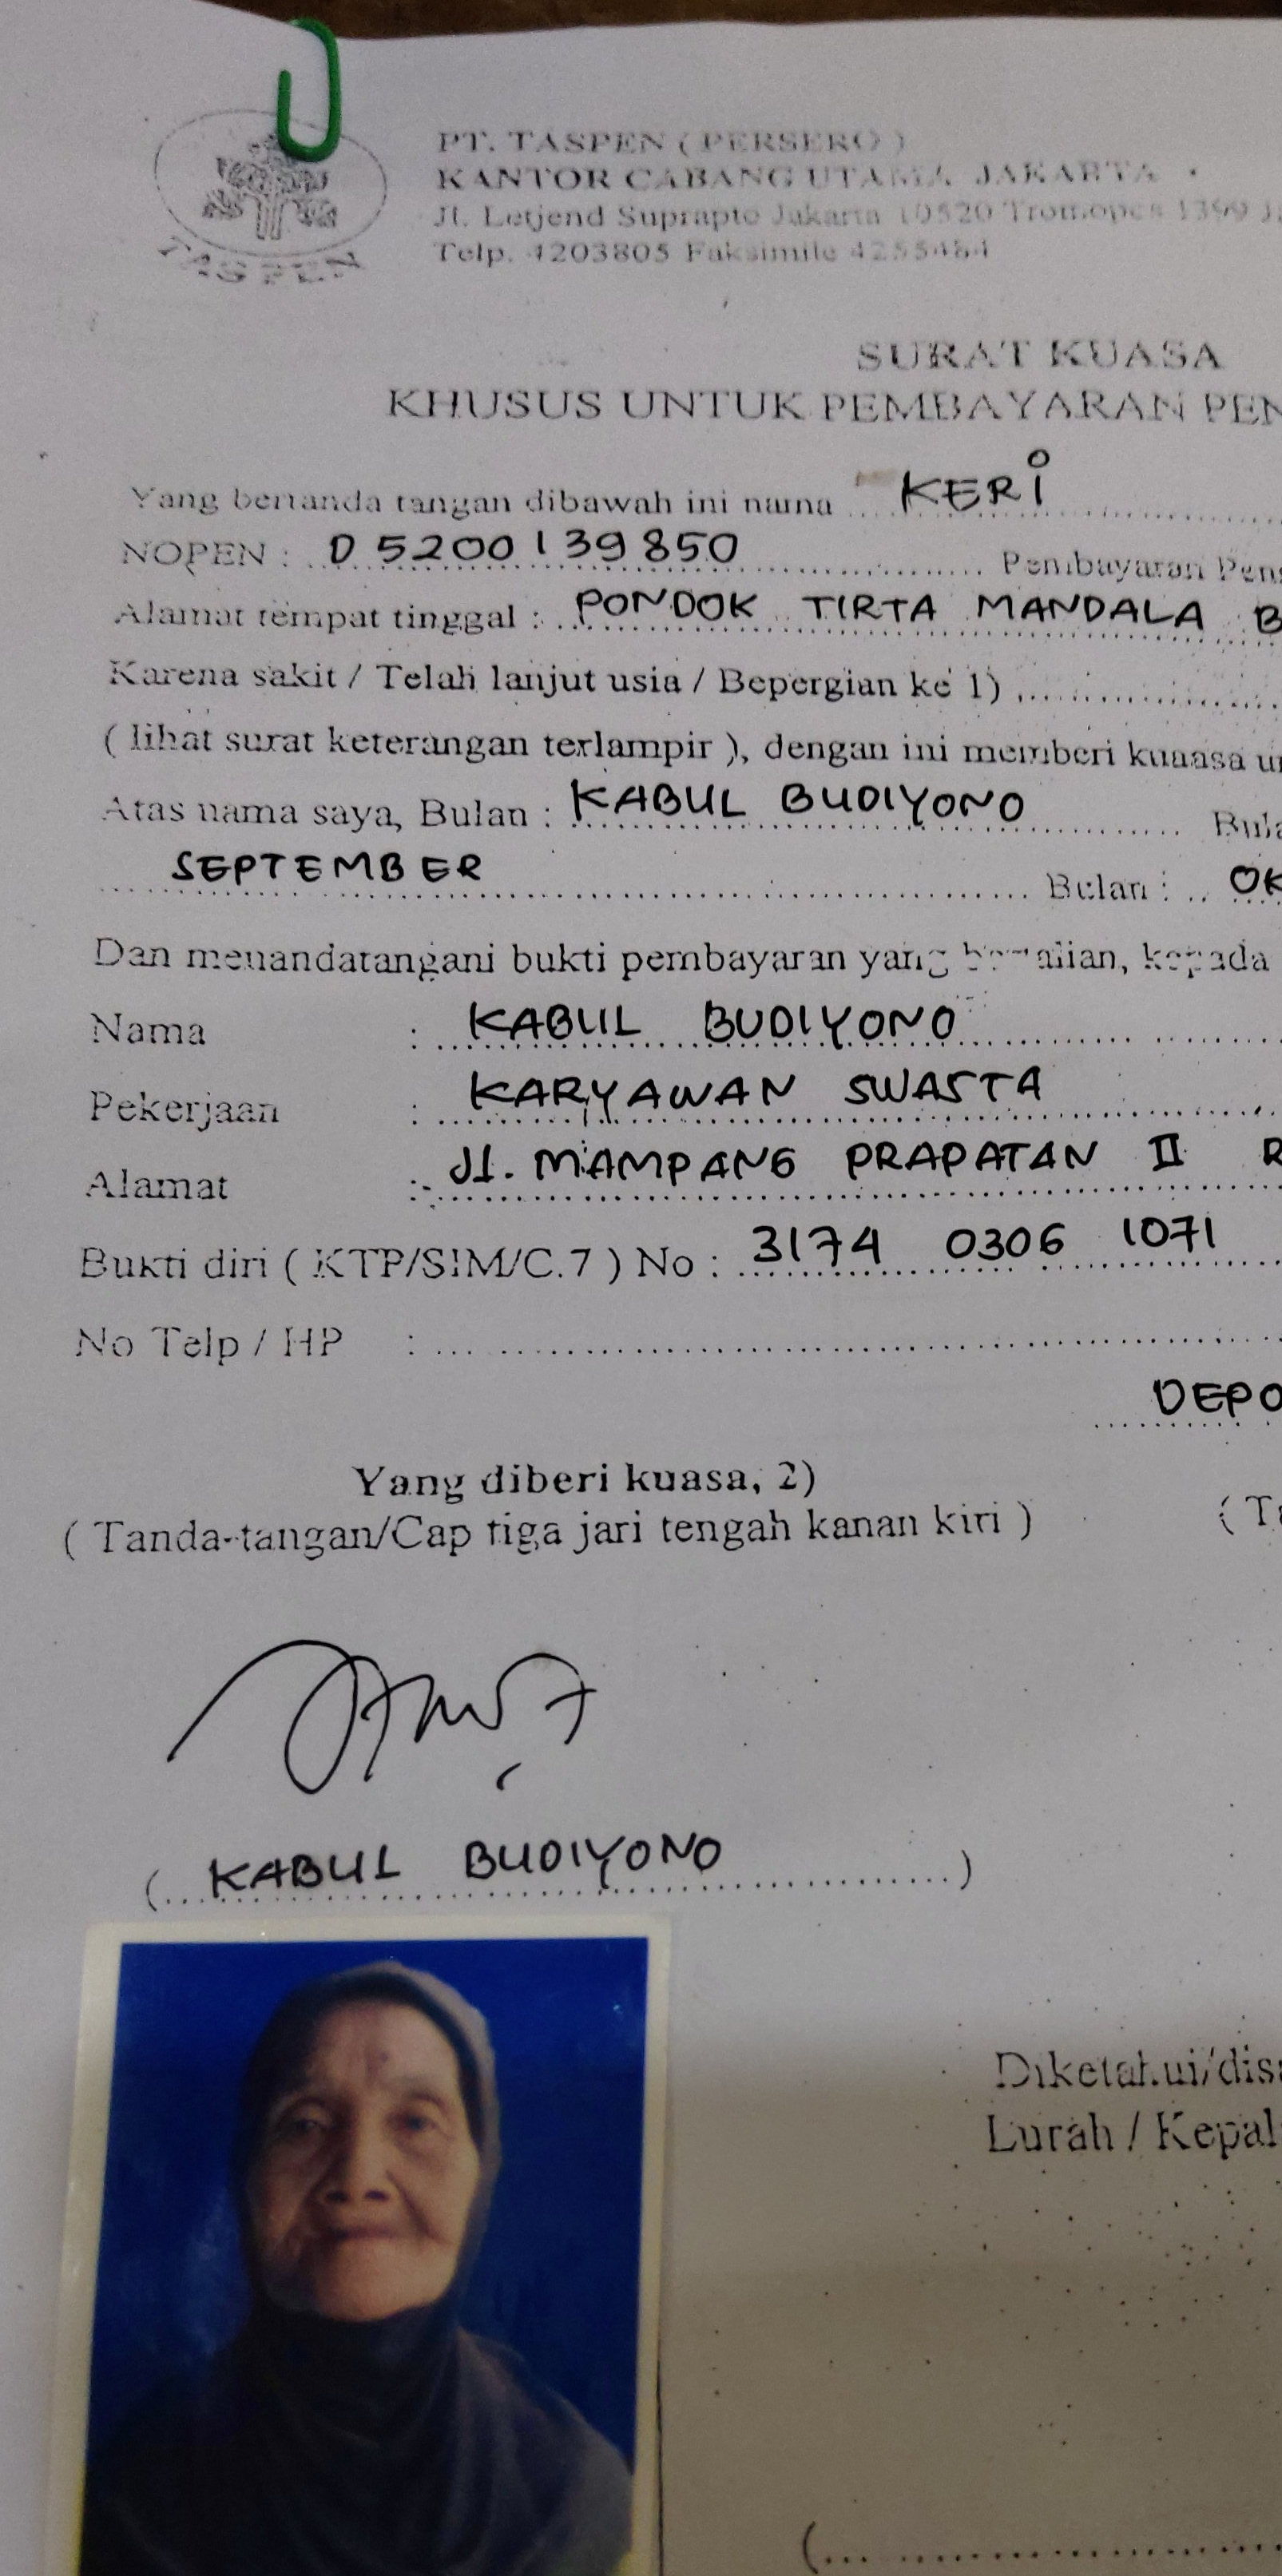 TASPEN
PT. TASPEN ( PERSERO )
KANTOR CABANG UTAMA JAKARTA
Jl. Letjend Suprapto Jakarta 10520 Tromolpos 1399
Telp. 4203805 Faksimile 4255484
SURAT KUASA
KHUSUS UNTUK PEMBAYARAN PEN
Yang bertanda tangan dibawah ini nama KERI
NOPEN : D 5200139850 Pembayaran Pens
Alamat tempat tinggal : PONDOK TIRTA MANDALA B
Karena sakit / Telah lanjut usia / Bepergian ke 1)
( lihat surat keterangan terlampir ), dengan ini memberi kuaasa un
Atas nama saya, Bulan : KABUL BUDIYONO Bula
SEPTEMBER Bulan : OK
Dan menandatangani bukti pembayaran yang kepada
Nama : KABUL BUDIYONO
Pekerjaan : KARYAWAN SWASTA
Alamat : Jl. MAMPANG PRAPATAN II R
Bukti diri ( KTP/SIM/C.7 ) No : 3174 0306 1071
No Telp / HP :
DEPO
Yang diberi kuasa, 2)
( Tanda-tangan/Cap tiga jari tengah kanan kiri ) ( Ta
( KABUL BUDIYONO )
Diketahui/dis
Lurah / Kepal